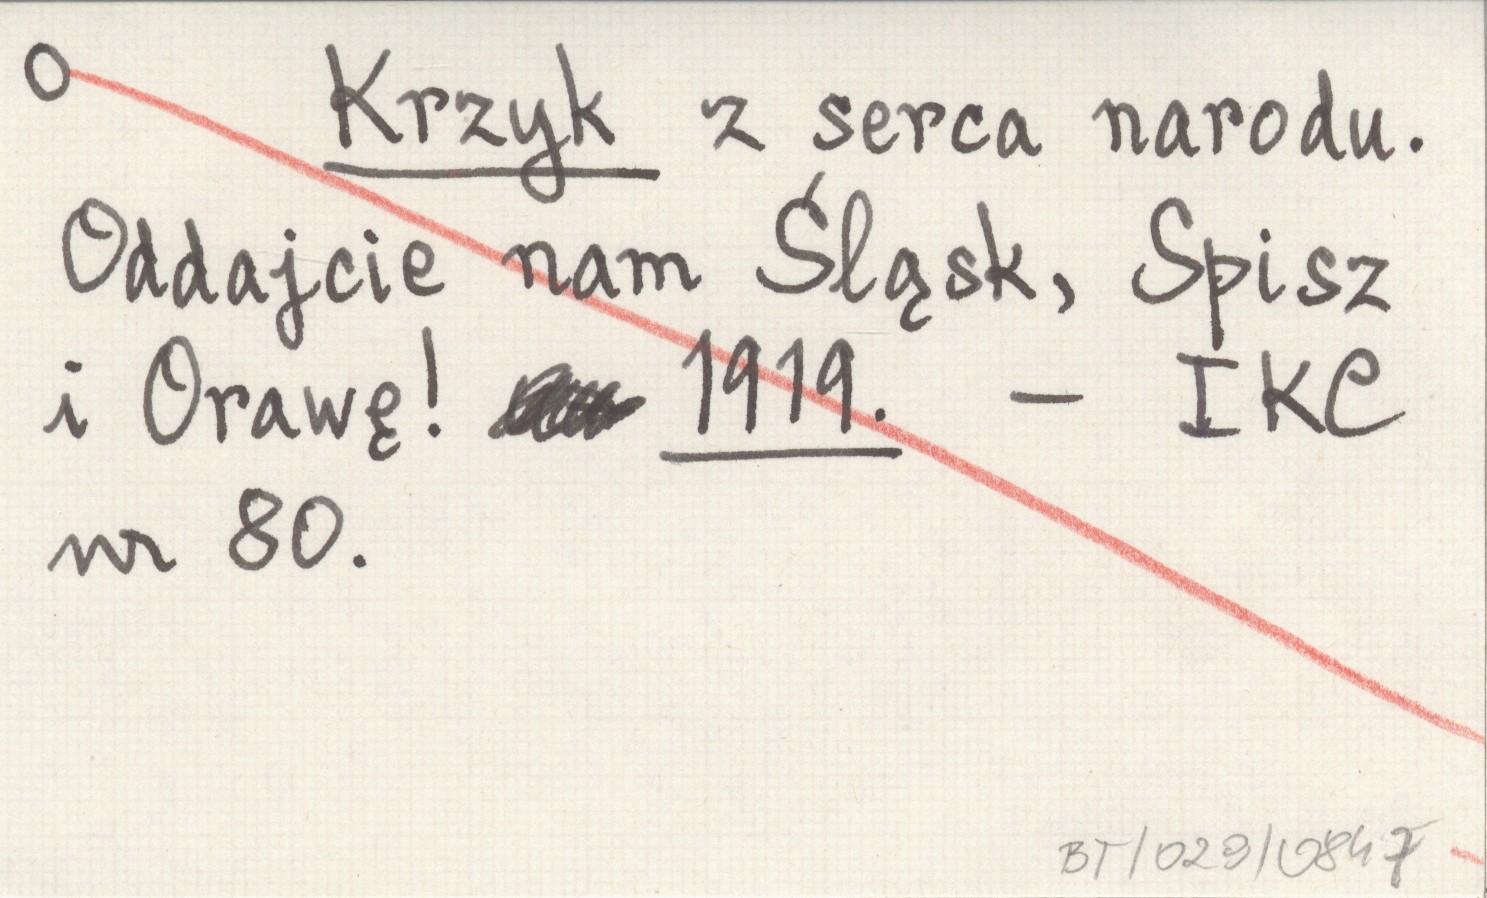 O Krzyk z serca narodu.
Oddajcie nam Śląsk, Spisz
i Orawę! 1919. – IKC
nr 80.
BT/023/0847